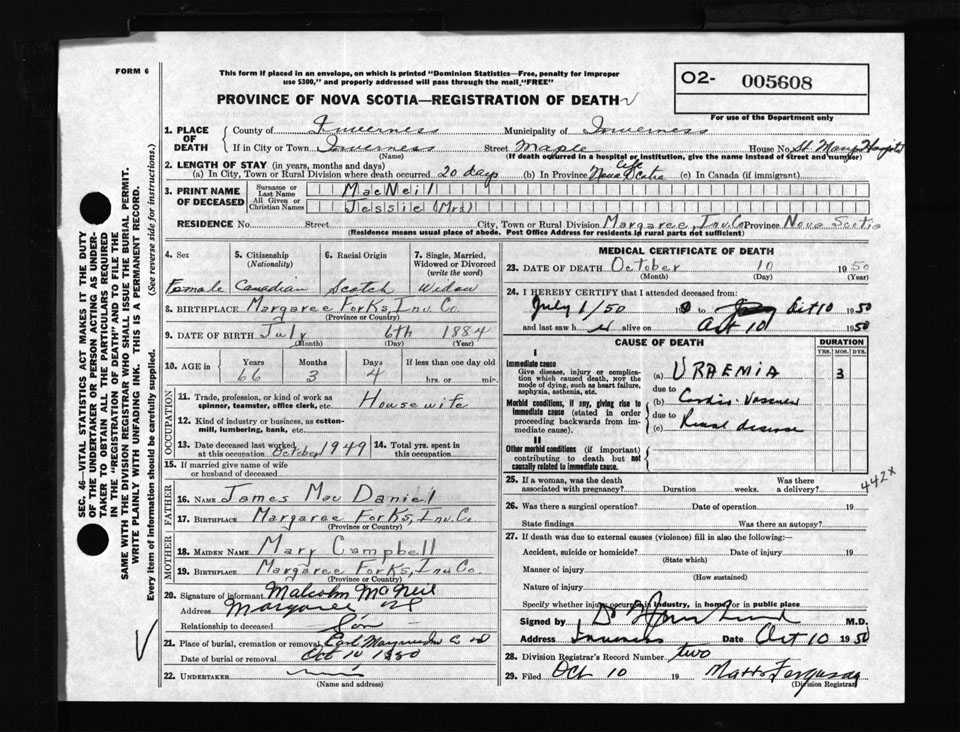 FORM 6
This form if placed in an envelope, on which is printed "Dominion Statistics—Free, penalty for improper
use $300," and properly addressed will pass through the mail "FREE"
O2- 005608
PROVINCE OF NOVA SCOTIA—REGISTRATION OF DEATH
For use of the Department only
1. PLACE OF DEATH
County of Inverness Municipality of Inverness
If in City or Town Inverness Street Maple House No. St. Mary's Hospital
(Name) (If death occurred in a hospital or institution, give the name instead of street and number)
2. LENGTH OF STAY (in years, months and days)
(a) In City, Town or Rural Division where death occurred 20 days (b) In Province life Nova Scotia (c) In Canada (if immigrant)
3. PRINT NAME OF DECEASED
Surname or Last Name MacNeil
All Given or Christian Names Jessie (Mrs)
RESIDENCE No. Street City, Town or Rural Division Margaree, Inv. Co Province Nova Scotia
(Residence means usual place of abode. Post Office Address for residents in rural parts not sufficient)
4. Sex 5. Citizenship (Nationality) 6. Racial Origin 7. Single, Married, Widowed or Divorced (write the word)
Female Canadian Scotch Widow
8. BIRTHPLACE Margaree Forks, Inv. Co.
(Province or Country)
9. DATE OF BIRTH July 6th 1884
(Month) (Day) (Year)
10. AGE in Years Months Days If less than one day old
66 3 4 hrs. or min.
OCCUPATION
11. Trade, profession, or kind of work as spinner, teamster, office clerk, etc. Housewife
12. Kind of industry or business, as cotton-mill, lumbering, bank, etc.
13. Date deceased last worked at this occupation October 1949 14. Total yrs. spent in this occupation
15. If married give name of wife or husband of deceased
FATHER
16. NAME James Mac Daniel
17. BIRTHPLACE Margaree Forks, Inv. Co.
(Province or Country)
MOTHER
18. MAIDEN NAME Mary Campbell
19. BIRTHPLACE Margaree Forks, Inv. Co.
(Province or Country)
20. Signature of informant Malcolm McNeil
Address Margaree
Relationship to deceased Son
21. Place of burial, cremation or removal East Margaree
Date of burial or removal Oct 10 1950
22. UNDERTAKER
(Name and address)
MEDICAL CERTIFICATE OF DEATH
23. DATE OF DEATH October 10 1950
(Month) (Day) (Year)
24. I HEREBY CERTIFY that I attended deceased from:
July 1/50 19 to Oct 10 1950
and last saw h alive on Oct 10 1950
CAUSE OF DEATH DURATION
YRS. MOS. DYS.
I
Immediate cause
Give disease, injury or complication which caused death, not the mode of dying, such as heart failure, asphyxia, asthenia, etc.
(a) URAEMIA 3
due to
Morbid conditions, if any, giving rise to immediate cause (stated in order proceeding backwards from immediate cause).
(b) Cardio-Vascular
due to
(c) Renal disease
II
Other morbid conditions (if important) contributing to death but not causally related to immediate cause.
442x
25. If a woman, was the death associated with pregnancy? Duration weeks. Was there a delivery?
26. Was there a surgical operation? Date of operation 19
State findings Was there an autopsy?
27. If death was due to external causes (violence) fill in also the following:—
Accident, suicide or homicide? Date of injury 19
(State which)
Manner of injury
(How sustained)
Nature of injury
Specify whether injury occurred in industry, in home, or in public place
Signed by M.D.
Address Inverness Date Oct 10 1950
28. Division Registrar's Record Number two
29. Filed Oct 10 19
(Division Registrar)
SEC. 46—VITAL STATISTICS ACT MAKES IT THE DUTY
OF THE UNDERTAKER OR PERSON ACTING AS UNDER-
TAKER TO OBTAIN ALL THE PARTICULARS REQUIRED
IN THE "REGISTRATION OF DEATH" AND TO FILE THE
SAME WITH THE DIVISION REGISTRAR WHO SHALL ISSUE THE BURIAL PERMIT.
WRITE PLAINLY WITH UNFADING INK. THIS IS A PERMANENT RECORD.
Every item of information should be carefully supplied. (See reverse side for instructions.)